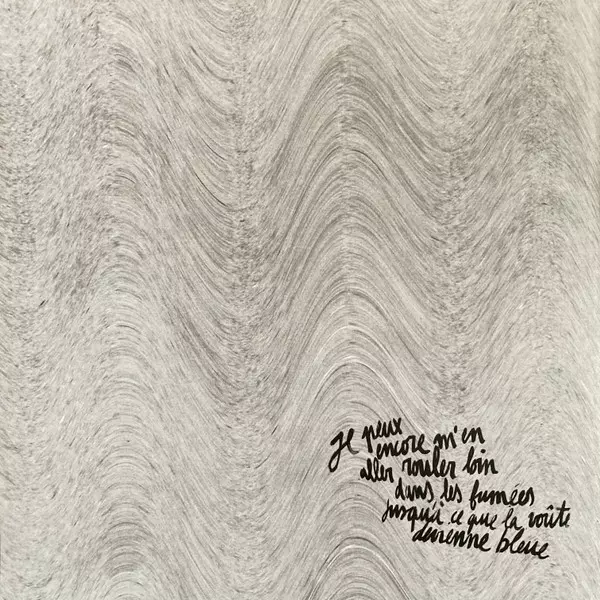 je peux
encore m'en
aller rouler loin
dans les fumées
jusqu'à ce que la voûte
devienne bleue